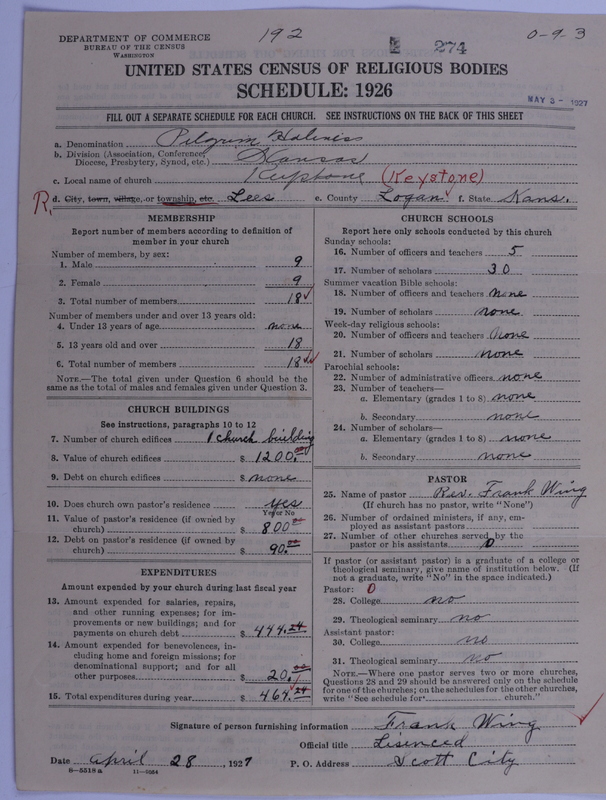 192
0-9-3
274
DEPARTMENT OF COMMERCE
BUREAU OF THE CENSUS
WASHINGTON
UNITED STATES CENSUS OF RELIGIOUS BODIES
SCHEDULE: 1926
MAY 3 - 1927
FILL OUT A SEPARATE SCHEDULE FOR EACH CHURCH. SEE INSTRUCTIONS ON THE BACK OF THIS SHEET
a. Denomination Pilgrim Holiness
b. Division (Association, Conference, Diocese, Presbytery, Synod, etc.) Kansas
c. Local name of church Keystone (Keystone)
R. d. City, town, village, or township, etc. Lees e. County Logan f. State Kans.
MEMBERSHIP
Report number of members according to definition of
member in your church
Number of members, by sex:
1. Male 9
2. Female 9
3. Total number of members 18
Number of members under and over 13 years old:
4. Under 13 years of age none
5. 13 years old and over 18
6. Total number of members 18
NOTE.—The total given under Question 6 should be the
same as the total of males and females given under Question 3.
CHURCH BUILDINGS
See instructions, paragraphs 10 to 12
7. Number of church edifices 1 church building
8. Value of church edifices $ 1200.00
9. Debt on church edifices $ none
10. Does church own pastor's residence yes
Yes or No
11. Value of pastor's residence (if owned by
church) $ 800.00
12. Debt on pastor's residence (if owned by
church) $ 90.00
EXPENDITURES
Amount expended by your church during last fiscal year
13. Amount expended for salaries, repairs,
and other running expenses; for im-
provements or new buildings; and for
payments on church debt $ 444.24
14. Amount expended for benevolences, in-
cluding home and foreign missions; for
denominational support; and for all
other purposes $ 20.00
15. Total expenditures during year $ 464.24
CHURCH SCHOOLS
Report here only schools conducted by this church
Sunday schools:
16. Number of officers and teachers 5
17. Number of scholars 30
Summer vacation Bible schools:
18. Number of officers and teachers none
19. Number of scholars none
Week-day religious schools:
20. Number of officers and teachers none
21. Number of scholars none
Parochial schools:
22. Number of administrative officers none
23. Number of teachers—
a. Elementary (grades 1 to 8) none
b. Secondary none
24. Number of scholars—
a. Elementary (grades 1 to 8) none
b. Secondary none
PASTOR
25. Name of pastor Rev. Frank Wing
(If church has no pastor, write "None")
26. Number of ordained ministers, if any, em-
ployed as assistant pastors
27. Number of other churches served by the
pastor or his assistants 0
If pastor (or assistant pastor) is a graduate of a college or
theological seminary, give name of institution below. (If
not a graduate, write "No" in the space indicated.)
Pastor: 0
28. College no
29. Theological seminary no
Assistant pastor:
30. College no
31. Theological seminary no
NOTE.—Where one pastor serves two or more churches,
Questions 28 and 29 should be answered only on the schedule
for one of the churches; on the schedules for the other churches,
write "See schedule for church."
Signature of person furnishing information Frank Wing
Official title Lisenced
Date April 28, 1927 P. O. Address Scott City
8-5518 a 11-9084